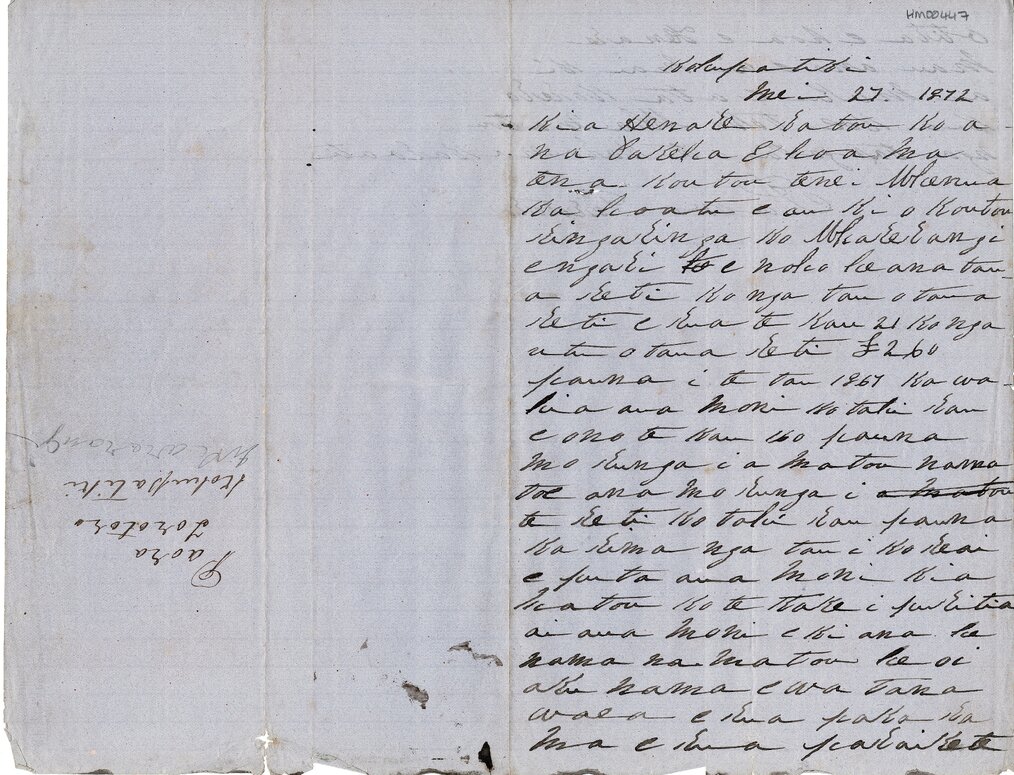 HM00447
Kohupatiki
Mei 27 1872
Kia Henare Ratou ko a-
na Pakeha E hoa ma
tena Koutou tenei Whenua
ka hoatu e au ki o Koutou
ringaringa ko Wharerangi
engari te e noho he ana tau-
a Reti ko nga tau o taua
Reti e rua te kau 21 ko nga
utu o taua Reti £260
pauna i te tau 1867 ka wa-
hia aua moni kotahi rau
e ono te kau 160 pauna
mo runga i a matou nama
toe ana mo runga i a matou
te Reti kotahi rau pauna
ka rima nga tau i kore ai
e puta aua moni kia
matou ko te take i puritia
ai aua moni e ki ana he
nama na matou he oi
aku nama e wa tana
waea e rua paka ra
ma e rua paraikete
Paora
Torotoro
Kohupatiki
Wharerangi